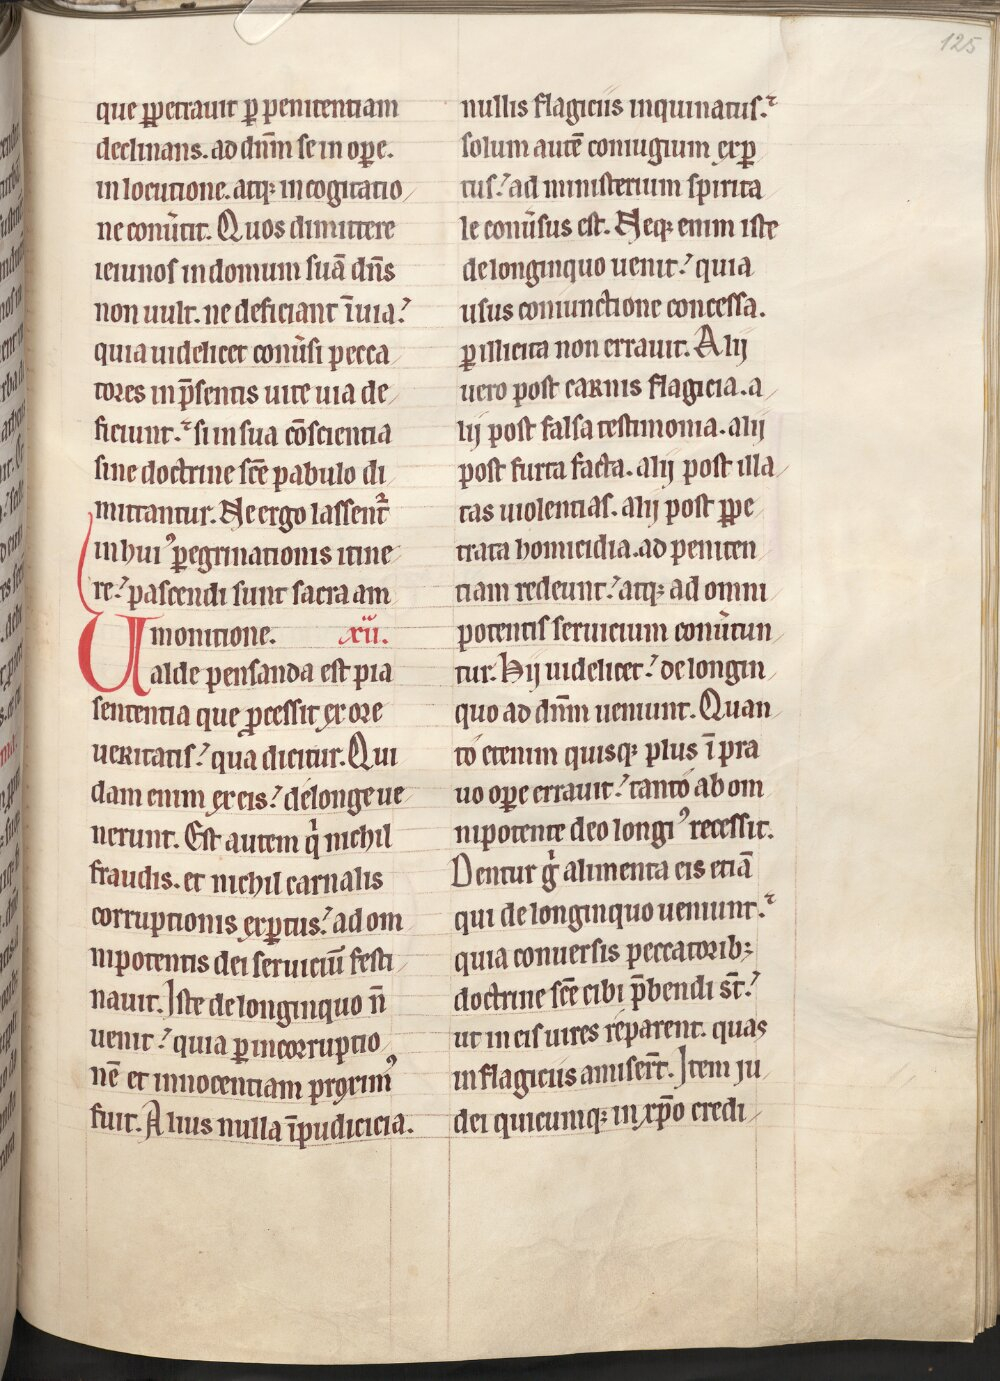 125
que ꝑpetrauit ꝑ penitentiam
declinans. ad dn̄m se in oꝑe.
in locutione. atq; in cogitatio
ne conu̓tit. Quos dimittere
ieiunos in domum suā dn̄s
non uult. ne deficiant ī uia?
quia uidelicet conu̓si pecca
tores in p̄sentis uite uia de
ficiunt. si in sua cōscientia
sine doctrine sc̄e pabulo di
mittantur. Ne ergo lassent᷑
in huiꝰ ꝑegrinationis itine
re? pascendi sunt sacra am
monitione. xii.
Ualde pensanda est pia
sententia que ꝓcessit ex ore
ueritatis? qua dicitur. Qui
dam enim ex eis? de longe ue
nerunt. Est autem qͥ nichil
fraudis. et nichil carnalis
corruptionis exꝑtus? ad om
nipotentis dei seruiciū festi
nauit. Iste de longinquo n̄
uenit? quia ꝑ incorruptio
nē et innocentiam proximꝰ
fuit. Alius nulla īpudicicia.
nullis flagiciis inquinatus.
solum autē coniugium exꝑ
tus? ad ministerium spirita
le conu̓sus est. Neq; enim iste
de longinquo uenit? quia
usus coniunctione concessa.
ꝑ illicita non errauit. Alij
uero post carnis flagicia. a
lij post falsa testimonia. alij
post furta facta. alij post illa
tas uiolentias. alij post ꝑpe
trata homicidia. ad peniten
tiam redeunt? atq; ad omni
potentis seruicium conu̓tun
tur. Hij uidelicet? de longin
quo ad dn̄m ueniunt. Quan
to etenim quisq; plus ī pra
uo oꝑe errauit? tanto ab om
nipotente deo longiꝰ recessit.
Dentur gͦ alimenta eis etiā
qui de longinquo ueniunt.
quia conuersis peccatorib;
doctrine sc̄e cibi p̄bendi st̄?
ut in eis uires reparent. quas
in flagiciis amiser̄t. Item iu
dei quicumq; in xp̄o credi